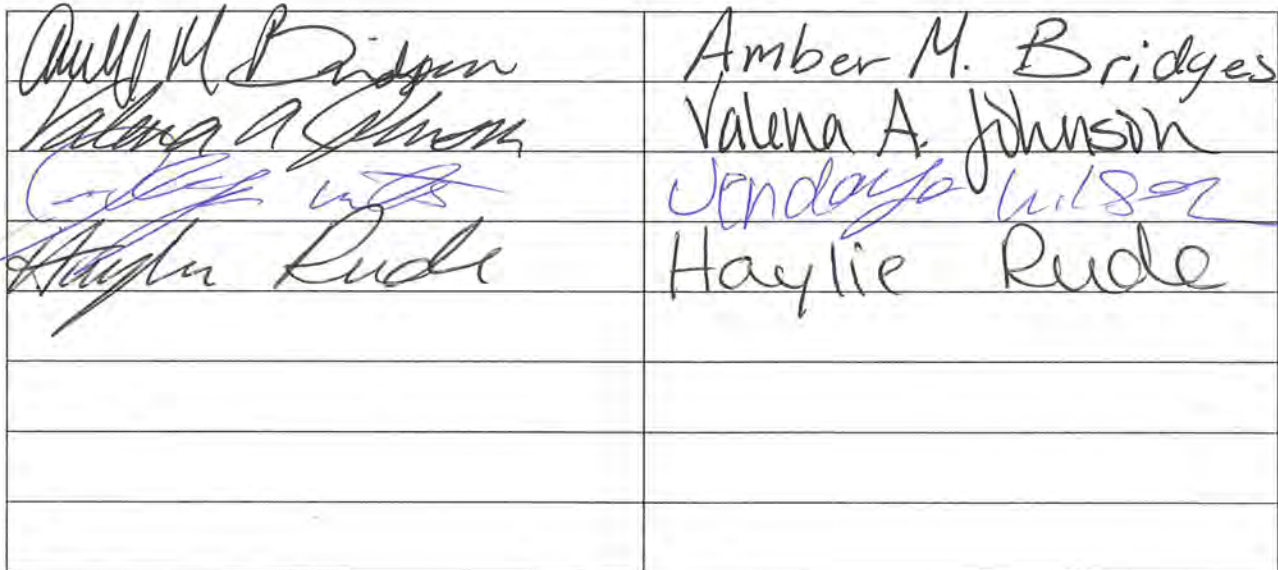 Amber M Bridges Amber M. Bridges
Valena A Johnson Valena A. Johnson
Wilson
Haylie Rude Haylie Rude